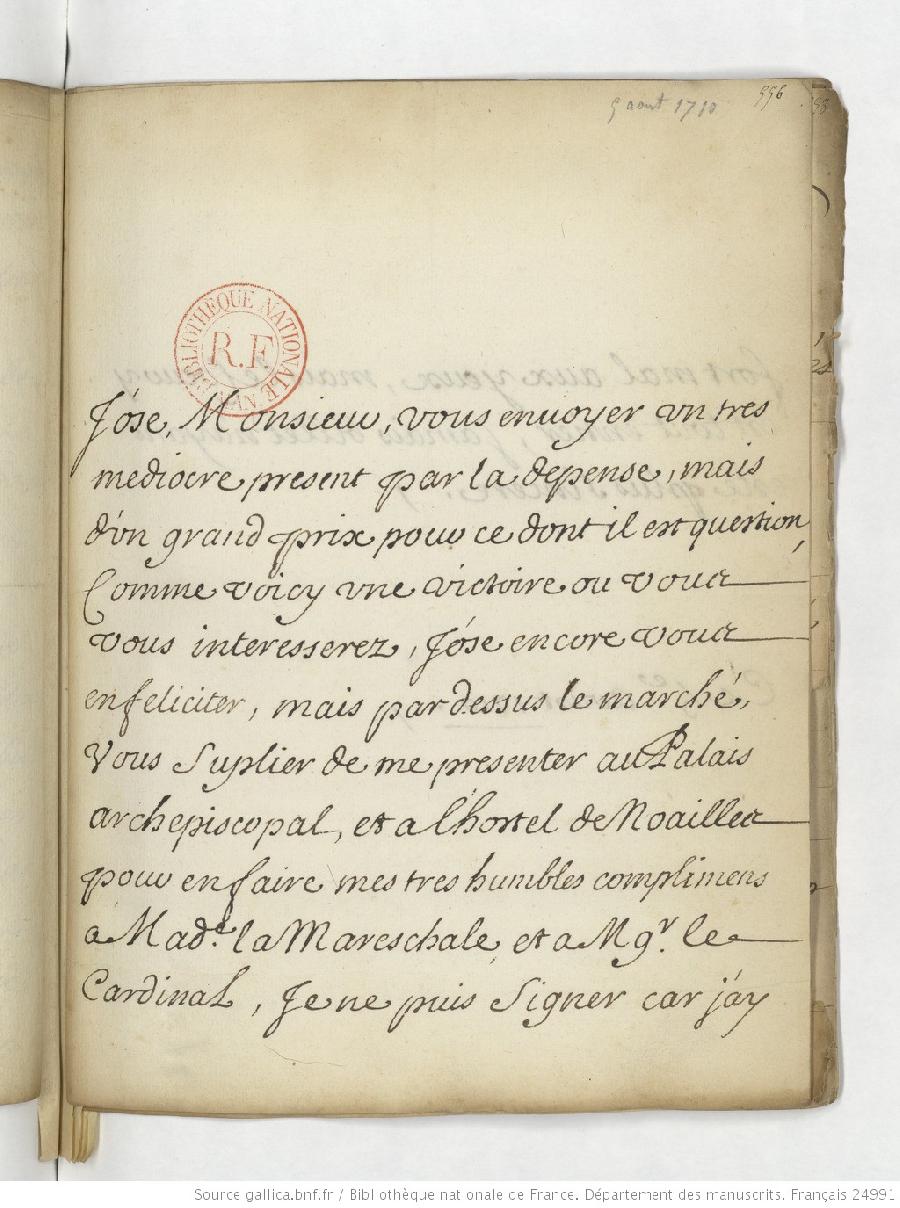 5 aout 1710
556
BIBLIOTHEQUE NATIONALE MSS
R.F.
J'ose, Monsieur, vous envoyer vn tres
mediocre present par la depense, mais
d'vn grand prix pour ce dont il est question,
Comme voicy vne victoire ou vous
vous interesserez, J'ose encore vous
en feliciter, mais par dessus le marché,
Vous Suplier de me presenter au Palais
archepiscopal, et a l'hostel de Noailles
pour en faire mes tres humbles complimens
a Mad.e la Mareschale, et a Mgr. le
Cardinal, Je ne puis Signer car j'ay
Source gallica.bnf.fr / Bibliothèque nationale de France. Département des manuscrits. Français 24991